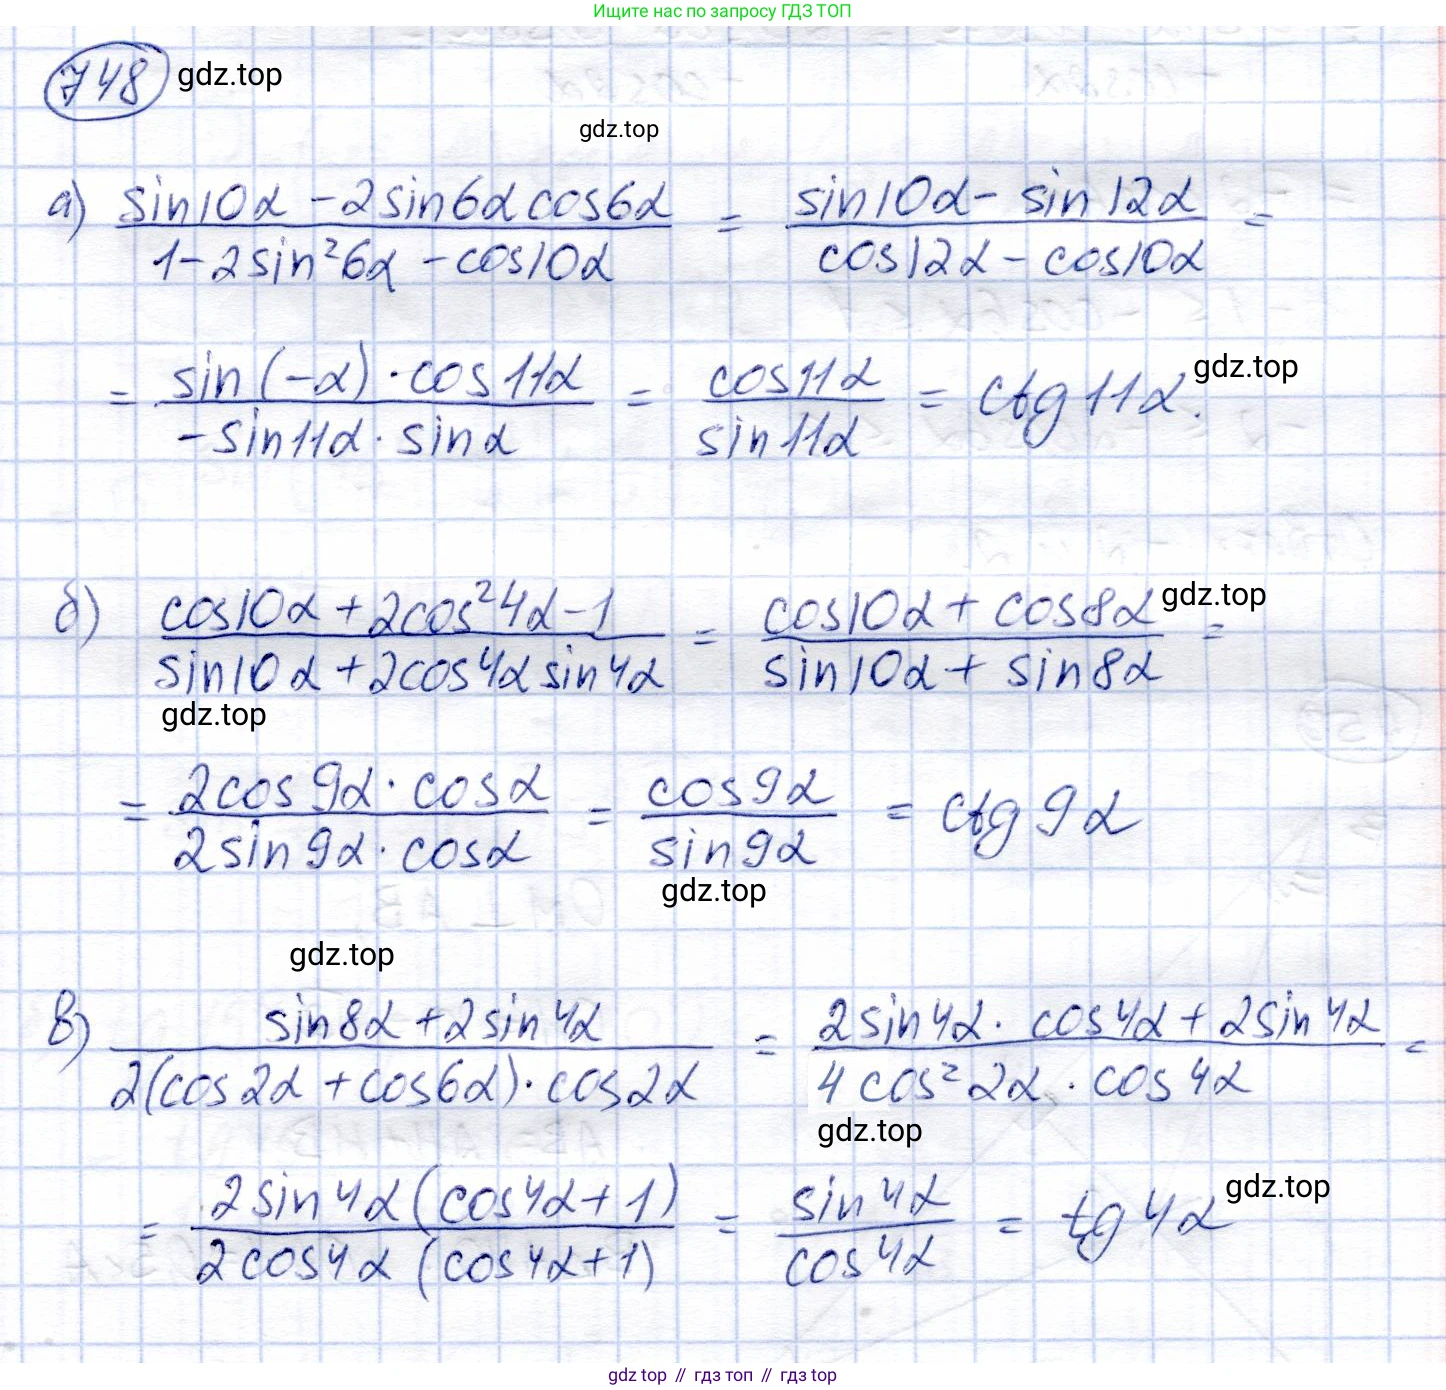 Ищите нас по запросу ГДЗ ТОП
748 gdz.top
gdz.top
а) (sin10α − 2sin6α cos6α)/(1 − 2sin²6α − cos10α) = (sin10α − sin12α)/(cos12α − cos10α) =
= (sin(−α) · cos11α)/(−sin11α · sinα) = cos11α/sin11α = ctg11α. gdz.top
б) (cos10α + 2cos²4α − 1)/(sin10α + 2cos4α sin4α) = (cos10α + cos8α)/(sin10α + sin8α) = gdz.top
gdz.top
= (2cos9α · cosα)/(2sin9α · cosα) = cos9α/sin9α = ctg9α
gdz.top
gdz.top
в) (sin8α + 2sin4α)/(2(cos2α + cos6α) · cos2α) = (2sin4α · cos4α + 2sin4α)/(4cos²2α · cos4α) =
gdz.top
= (2sin4α(cos4α + 1))/(2cos4α(cos4α + 1)) = sin4α/cos4α = tg4α gdz.top
gdz.top // гдз топ // гдз top